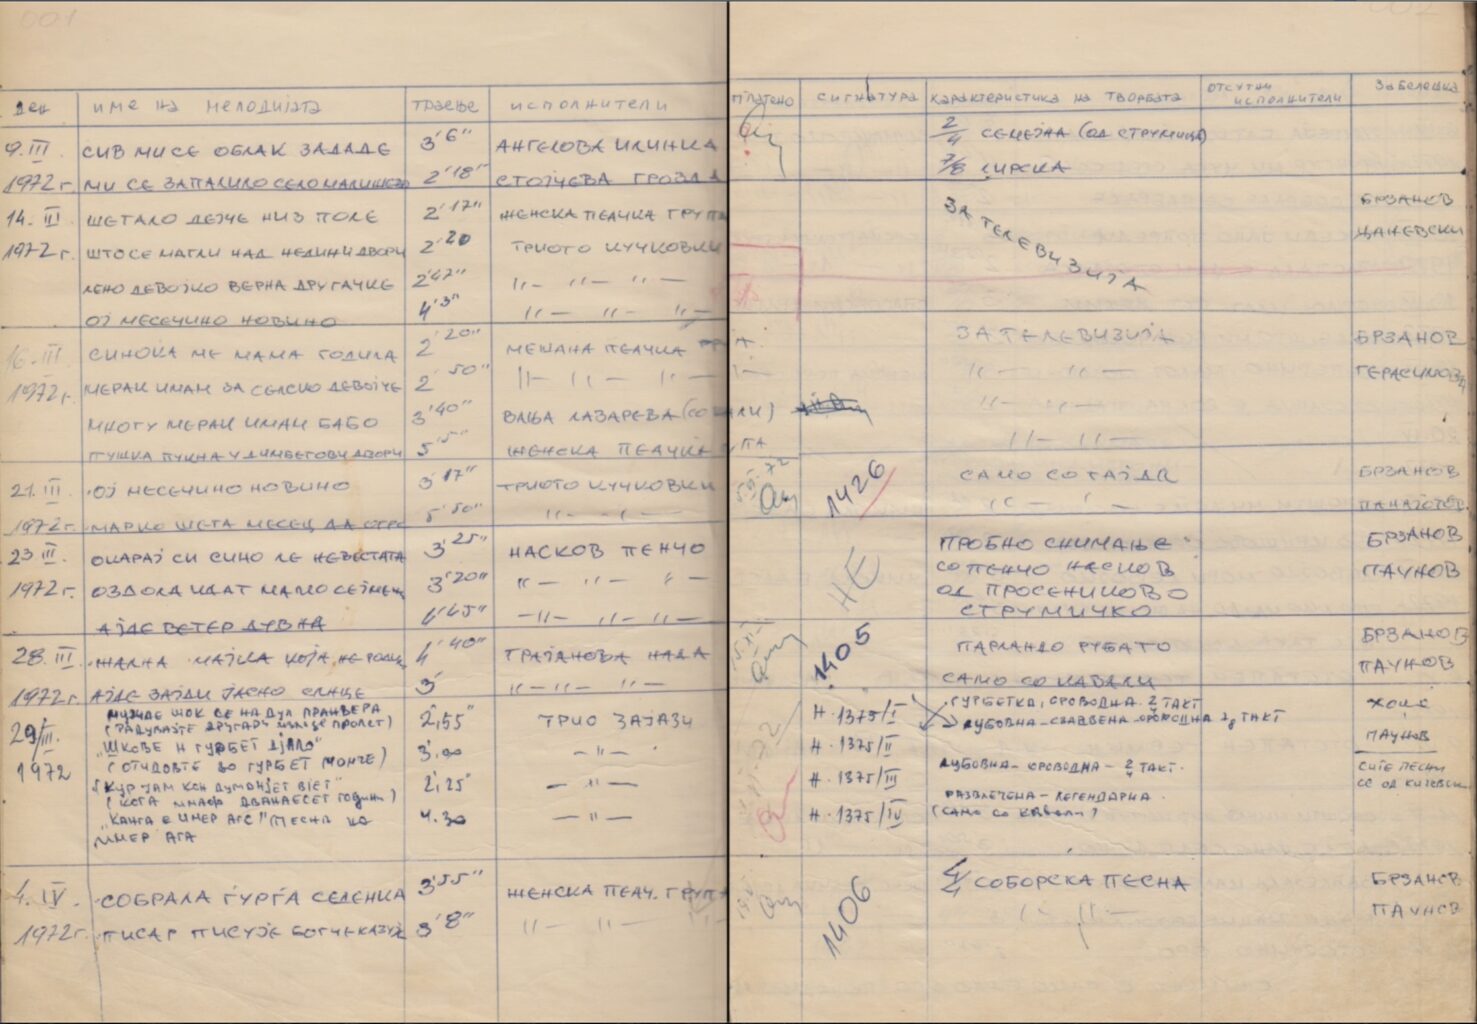 001
002
ден име на мелодијата траење исполнители
плаќено сигнатура карактеристика на творбата отсутни исполнители забелешка
9. III. СИВ МИ СЕ ОБЛАК ЗАДАДЕ 3'6" АНГЕЛОВА ИЛИНКА 2/4 СЕМЕЈНА (ОД СТРУМИЦА)
1972 г. МИ СЕ ЗАПАЛИЛО СЕЛО 2'18" СТОЈЧЕВА ГРОЗДА 7/8 ЛИРСКА
14. III ШЕТАЛО ДЕЈЧЕ НИЗ ПОЛЕ 2'17" ЖЕНСКА ПЕАЧКА ГРУПА ЗА ТЕЛЕВИЗИЈА БРЗАНОВ
1972 г. ШТО СЕ МАГЛИ НАД НЕДИНИ ДВОРИ 2'20 ТРИОТО КУЧКОВКИ ЦАНЕВСКИ
ЛЕНО ДЕВОЈКО ВЕРНА ДРУГАЧКЕ 2'47" "— "— "—
ОЈ МЕСЕЧИНО НОВИНО 4'3" "— "— "—
16. III СИНОЌА МЕ МАМА ГОДИЛА 2'20" МЕШАНА ПЕАЧКА ЗА ТЕЛЕВИЗИЈА БРЗАНОВ
1972 г. МЕРАК ИМАМ ЗА СЕЛСКО ДЕВОЈЧЕ 2'50" "— "— "— "— "— "— ГЕРАСИМОВ
МНОГУ МЕРАК ИМАМ БАБО 3'40" ВАЊА ЛАЗАРЕВА (СО КАВАЛИ) "— "—
ПУШКА ПУКНА У ДИМБЕГОВИ ДВОРИ 5'5" ЖЕНСКА ПЕАЧКА ГРУПА "— "—
21. III. ОЈ МЕСЕЧИНО НОВИНО 3'17" ТРИОТО КУЧКОВКИ 1426 САМО СО ГАЈДА БРЗАНОВ
1972 г. МАРКО ШЕТА МЕСЕЦ ДА ОГРЕ 5'50" "— "— "— "— "—
23 III. ОКАРАЈ СИ СИНО ЛЕ НЕВЕСТАТА 3'25" НАСКОВ ПЕНЧО НЕ ПРОБНО СНИМАЊЕ БРЗАНОВ
1972 г. ОЗДОЛА ИДАТ МАЛО СЕЈМЕНИ 3'20" "— "— "— СО ПЕНЧО НАСКОВ ПАУНОВ
ОД ПРОСЕНИКОВО
АЈДЕ ВЕТЕР ДУВНА 4'45" "— "— "— СТРУМИЧКО
28. III ЖАЛНА МАЈКА КОЈА НЕ РОДИ 4'40" ТРАЈАНОВА НАДА 1405 ПАРЛАНДО РУБАТО БРЗАНОВ
1972 г. АЈДЕ ЗАЈДИ ЈАСНО СЛНЦЕ 3' "— "— "— САМО СО КАВАЛИ ПАУНОВ
29/III. МУЗИДЕ ШОК СЕ НА ДУЛ ПРАНВЕРА 2,55" ТРИО ЗАЈАЗИ Н. 1375/I ГУРБЕТКА, ОРОВОДНА 2/4 ТАКТ
(РАДУВАЈТЕ ДРУГАРИ ИМАЈЌЕ ПРОЛЕТ) ЉУБОВНА-СВАДБЕНА-ОРОВОДНА ТАКТ
1972 "ШКОВЕ Н ГУРБЕТ ДЈАЛО" 3.00 —"— Н. 1375/II ПАУНОВ
(ОТИДОВТЕ ВО ГУРБЕТ МОМЧЕ)
"КУР ЈАМ КОН ДУМОНЈЕТ ВІЕТ" 2,25" —"— Н. 1375/III ЉУБОВНА-ОРОВОДНА-2/4 ТАКТ. СИТЕ ПЕСНИ СЕ ОД КИЧЕВСКО
(КОГА ИМАВ ДВАНАЕСЕТ ГОДИНИ)
"КАНГА Е ИМЕР АГС" ПЕСНА НА 4.30 —"— Н. 1375/IV РАЗВЛЕЧЕНА-ЛЕГЕНДАРНА.
ИМЕР АГА (САМО СО КАВАЛИ)
4. IV. СОБРАЛА ЃУРЃА СЕДЕНКА 3'55" ЖЕНСКА ПЕАЧ. ГРУПА 1406 СОБОРСКА ПЕСНА БРЗАНОВ
1972 г. ПИСАР ПИСУЈЕ БОГ ЧЕ КАЗУЈЕ 3'8" "— "— "— ПАУНОВ